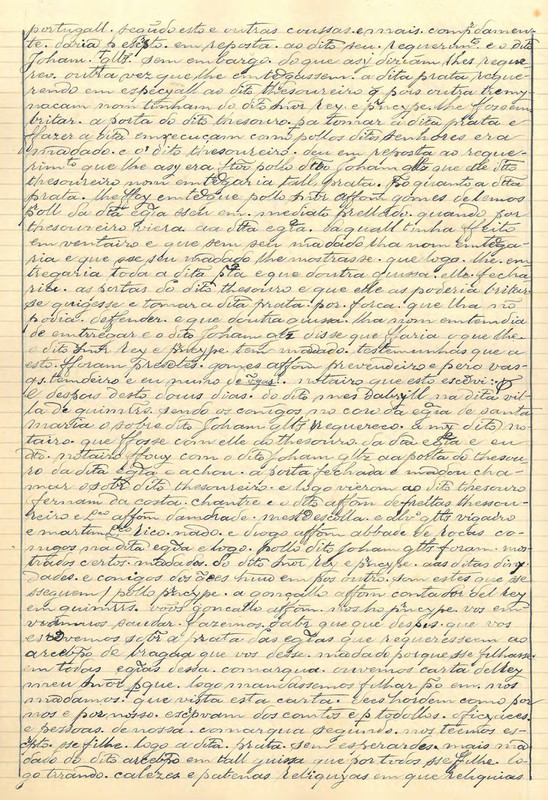 portugall. segũdo esto e outras coussas. e mais. compridamen-
te. daria p escpto. em reposta. ao dito seu. requerimto. e o dito
Joham. gllz. sem embargo. do que asy diziam lhes reque
reo. outra vez que lhe emtregassem. a dita prata reque-
rendo em especyall ao dito thesoureiro q pois outra tremy-
nacam nom tenham do dito Snor Rey. e pncype. lhe fossem
britar. a porta do dito thesouro. pa tomar a dita prata e
ffazer a dita emxecuçam como pollos ditos senhores era
mãdado. e o dito thesoureiro. deu em reposta ao reque-
rimto que lhe asy era ffto pollo dito Joham gllz que elle dito
thesoureiro nom emtregaria tall prata. Po quanto a dita
prata. lhe ffoy emtregue pollo snor affom gomes de lemos
poll da dita egia e seu em. mediato prellado. quando por
thesoureiro viera. aa dita egia. da quall tinha ffeito
emventairo e que sem seu mãdado lha nom emtrega-
ria e que sse seu mãdado lhe mostrasse. que logo lhe em-
tregaria toda a dita pta e que doutra guissa. elle. fecha
ria. as portas do dito thesouro e que elle as poderia britar
se quigesse e tomar a dita prata. por. forca. que lha nõ
podia. deffender. e que doutra guissa. lha nom emtemdia
de emtregar e o dito Joham gllz disse que ffaria o que lhe
o dito Snor Rey e pncype. tem mãdado. testemunhas que a
esto. fforam presẽtes. gomes affom prevendeiro e pero vas-
qs. temdeiro e eu nuno de notairo que esto escrivi.
E despois desto dous dias. do dito mes dabryll na dita vil-
la de guimrẽs. sendo os conigos no coro da egia de santa
maria o sobre dito Joham gllz requereo. a my dito no-
tairo. que ffosse com elle ao thesouro. da dita egia e eu
dto. notairo ffouy com o dito Joham gllz aa porta do thesou-
ro da dita egia e achou. a porta fechada e mãdou cha-
mar o sobre dito thesoureiro. e logo vieram ao dito thesouro
fernam da costa. chantre e o dito affom de freitas thessou-
reiro e affom damdrade. mestrescolla. e alvo gllz vigairo
e martim rico. mado. e diogo affom abbade de rocas co-
nigos na dita egia e logo. pollo dito Joham gllz foram. mos-
trados certos. mãdados. do dito Snor Rey e pncype. aas ditas diny-
dades. e conigos dos quaes huũ em pos outro. som estes que sse
sseguem / pollo pncype. a gonçallo affom contador del rey
em guimrẽs. vos gonçallo affom. nos ho pncype vos em-
vyamos saudar. fazemos. sabr que despois. que vos
escrevemos sobre a prata das egias que requeressem ao
arcebpo de bragaa que vos desse. mãdado porque sse filhasse
em todas egias dessa. comarqua. ouvemos carta del rey
meu Snor pque. logo. mandassemos filhar Po em. nos
mãdamos. que vista esta carta. dees hordem como por
nos e por nosso. escpvam dos contos e p todollos. oficiaees.
e pessoas de nossa. comarqua segundo. nos temos es-
cpto. sse filhe. logo a dita. prata. sem esperardes. mais mã
dado do dito arcebpo em tall guissa que por todos sse filhe. lo-
go tirando. calezes. e patenas reliquyas em que reliquias